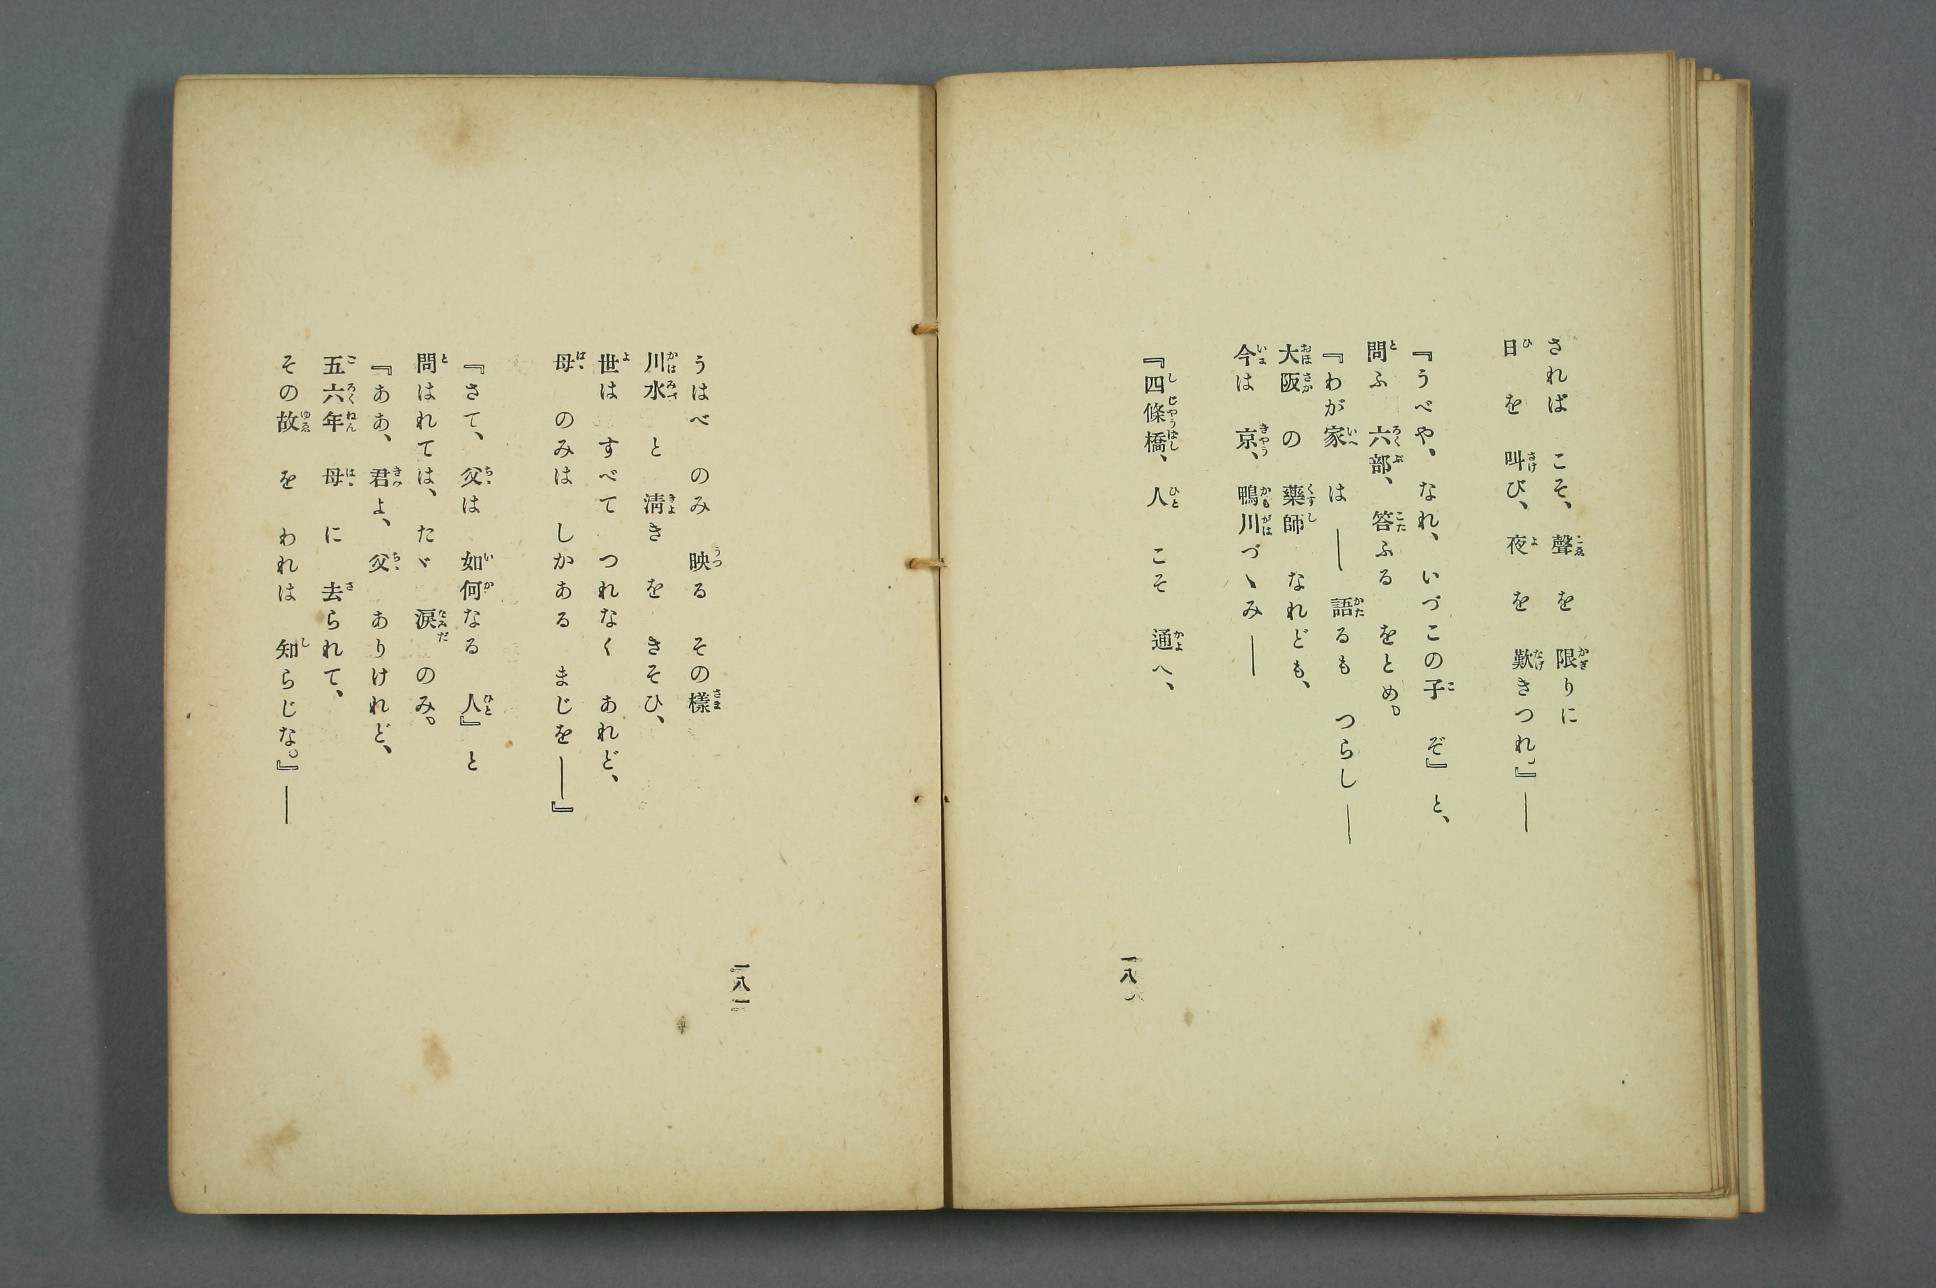 されば こそ、聲を限りに
日を叫び、夜を歎きつれ。』――
『うべや、なれ、いづこの子ぞ』と、
問ふ六部、答ふるをとめ。
『わが家は――語るもつらし――
大阪の藥師なれども、
今は京、鴨川づゝみ――
『四條橋、人こそ通へ、
一八〇
うはべのみ映るその樣
川水と淸きをきそひ、
世はすべてつれなくあれど、
母のみはしかあるまじを――』
『さて、父は如何なる人』と
問はれては、たゞ淚のみ。
『ああ、君よ、父ありけれど、
五六年母に去られて、
その故をわれは知らじな。』――
一八一